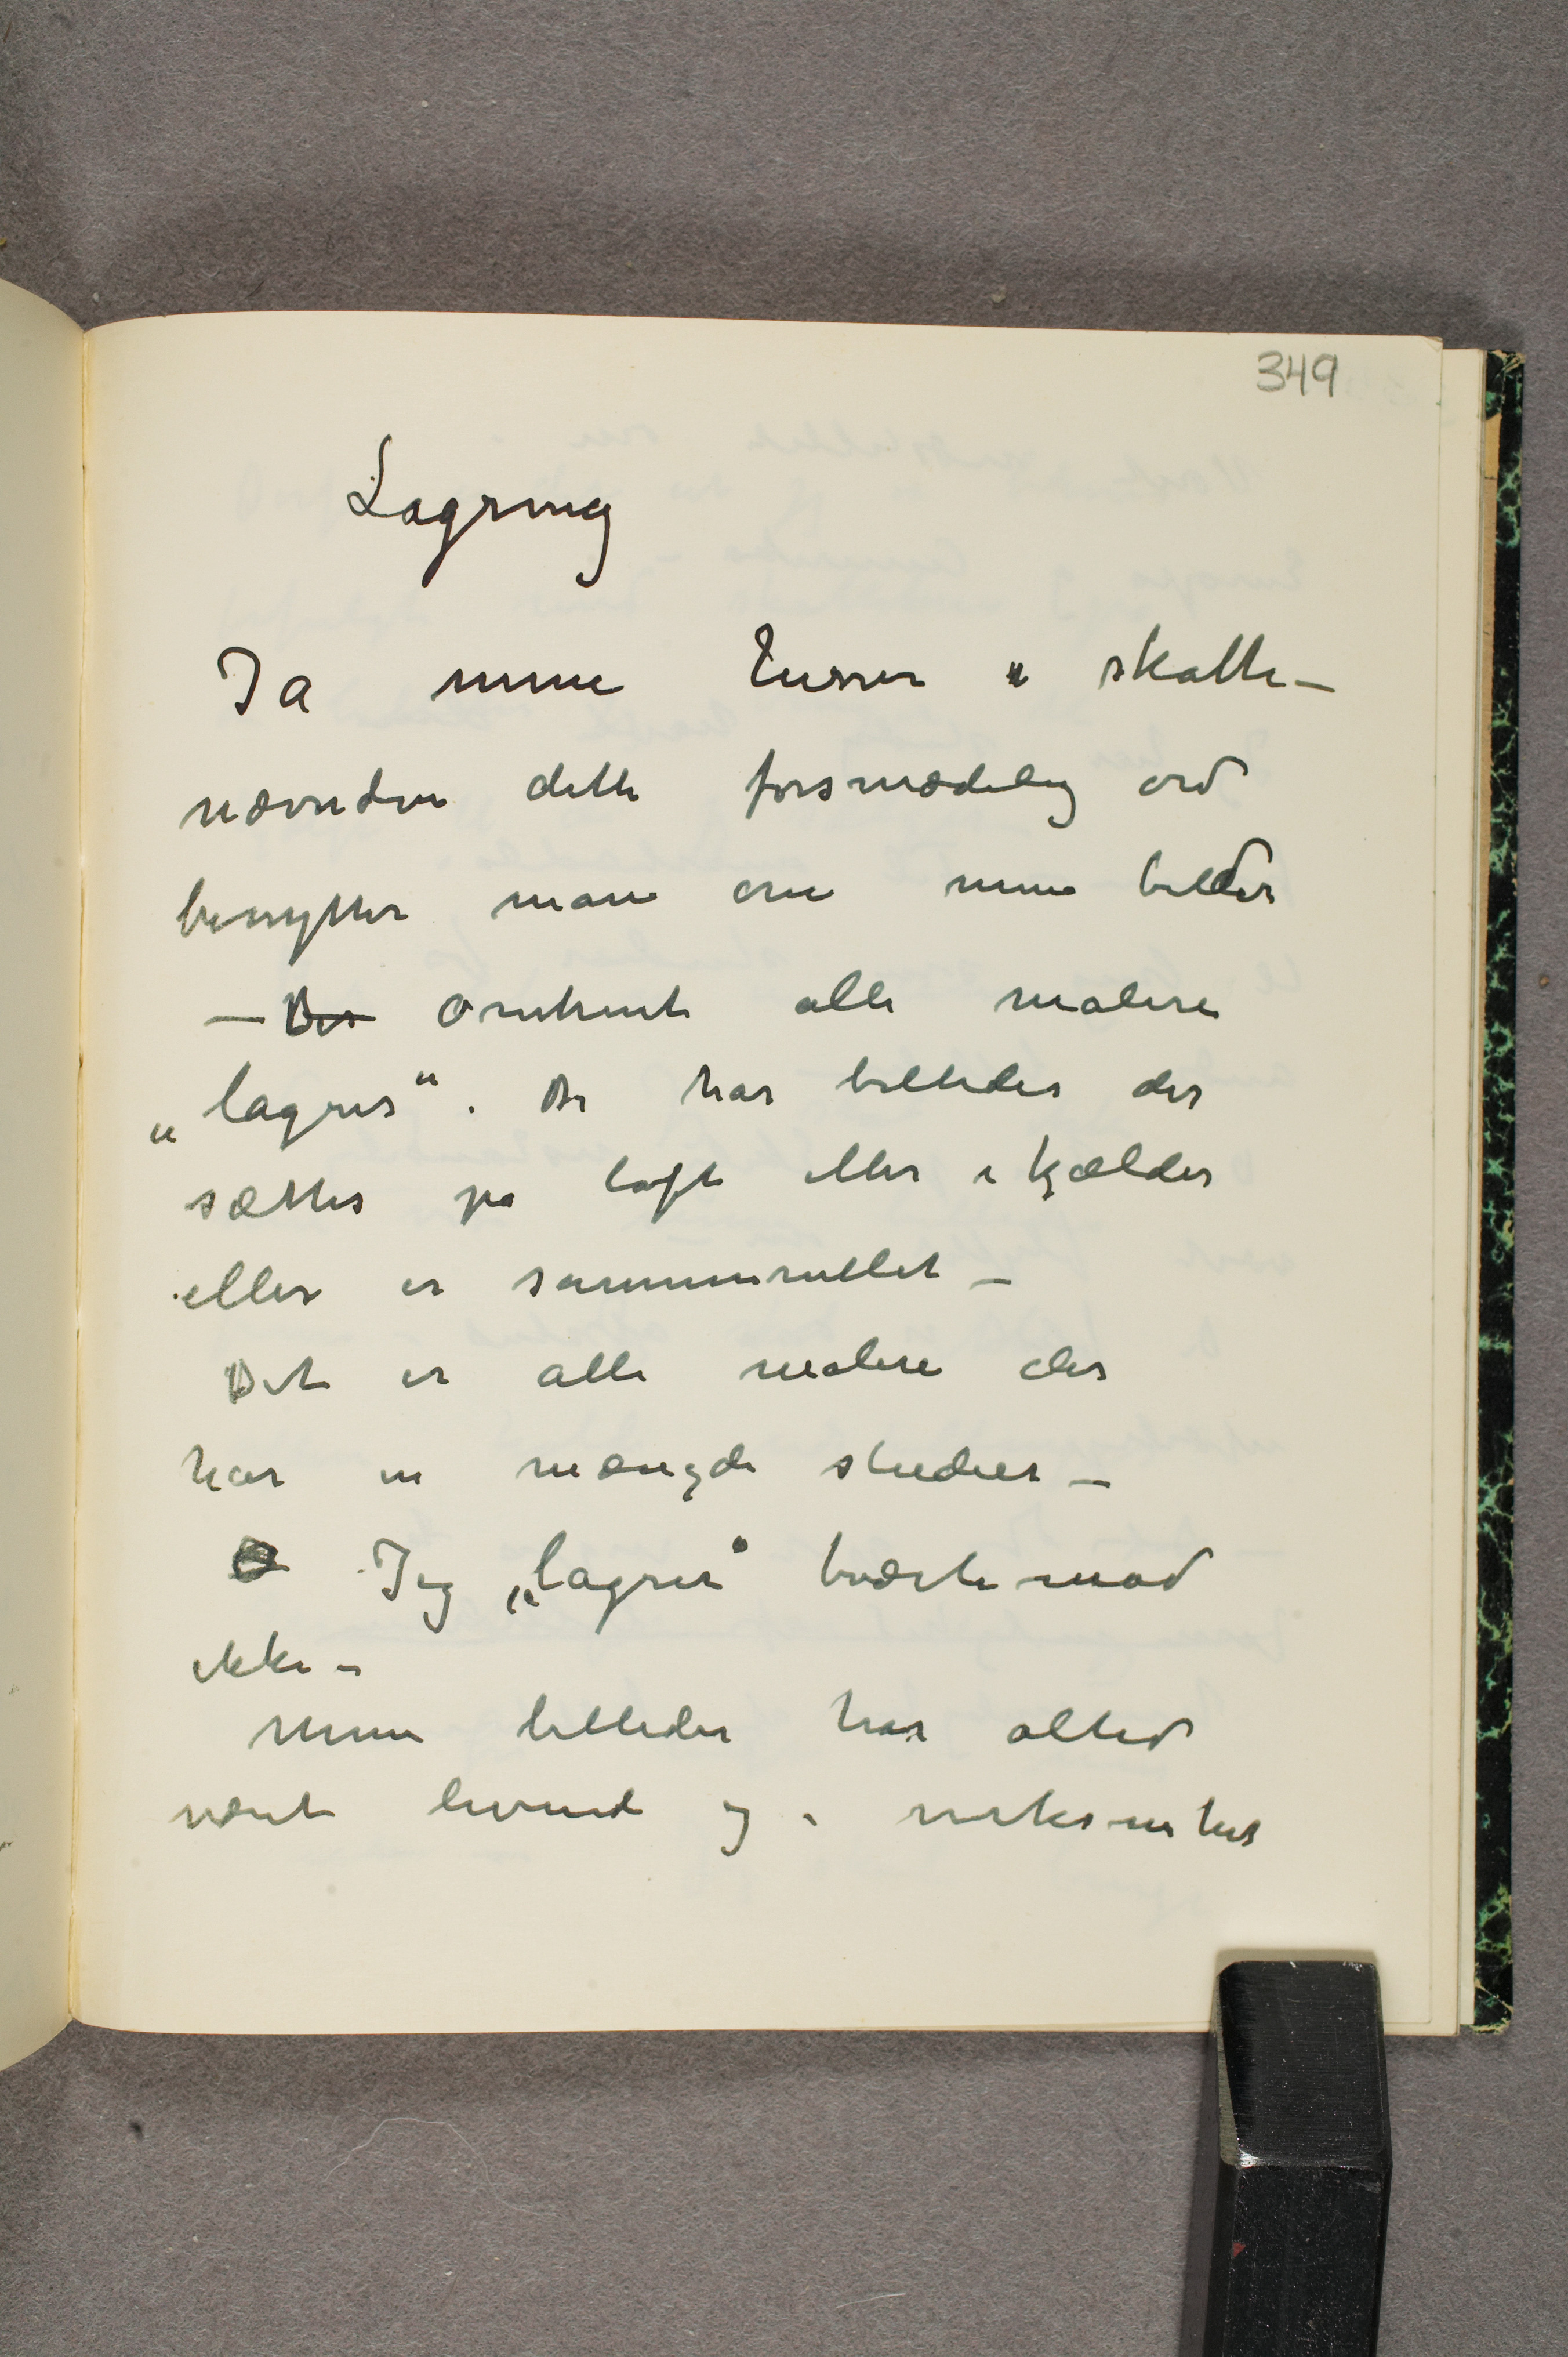 349
Lagring
Ja mine herrer i skatte–
nævnden dette forsmædelig ord
benytter man om mine billder
– Der omtrent alle malere
„lagrer“. De har billeder der
sættes på loft eller i kjælder
eller er sammenrullet –
Det er alle malere der
har en mængde studier –
Jeg „lagrer“ tværtemod
ikke –
Mine billeder har altid
været levende og i virksomhet